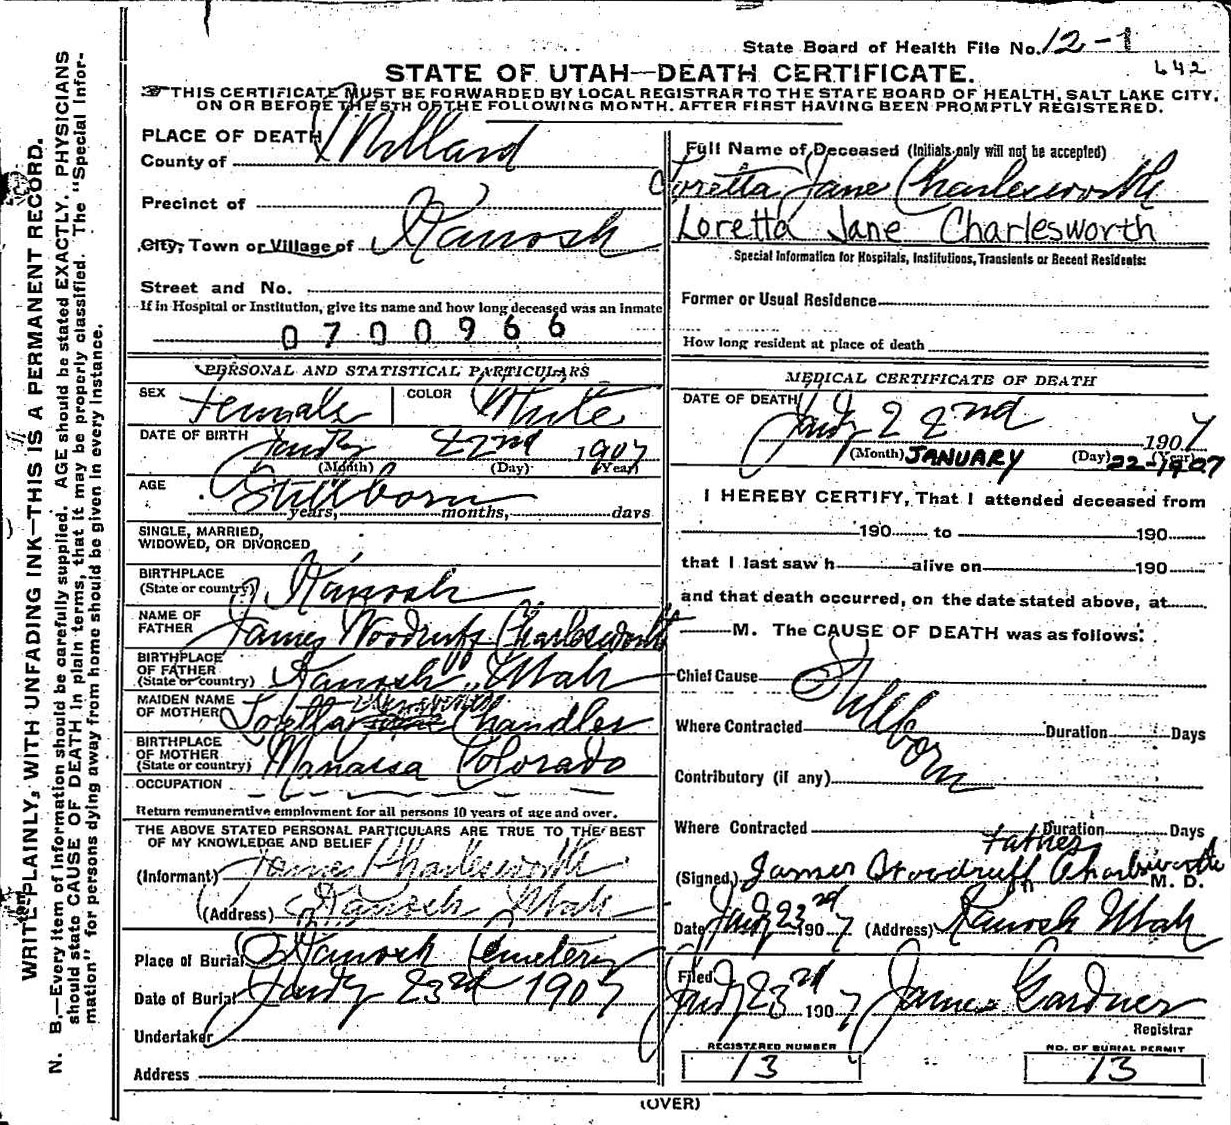 State Board of Health File No. 12-1
642
STATE OF UTAH—DEATH CERTIFICATE.
THIS CERTIFICATE MUST BE FORWARDED BY LOCAL REGISTRAR TO THE STATE BOARD OF HEALTH, SALT LAKE CITY,
ON OR BEFORE THE 5TH OF THE FOLLOWING MONTH. AFTER FIRST HAVING BEEN PROMPTLY REGISTERED.
WRITE PLAINLY, WITH UNFADING INK—THIS IS A PERMANENT RECORD.
N. B.—Every item of information should be carefully supplied. AGE should be stated EXACTLY. PHYSICIANS
should state CAUSE OF DEATH in plain terms, that it may be properly classified. The "Special Infor-
mation" for persons dying away from home should be given in every instance.
PLACE OF DEATH
County of Millard
Precinct of
City, Town or Village of Kanosh
Street and No.
If in Hospital or Institution, give its name and how long deceased was an inmate
0700966
PERSONAL AND STATISTICAL PARTICULARS
SEX Female COLOR White
DATE OF BIRTH Jany 22nd 1907
(Month) (Day) (Year)
AGE Stillborn
years, months, days
SINGLE, MARRIED,
WIDOWED, OR DIVORCED
BIRTHPLACE
(State or country) Kanosh
NAME OF
FATHER James Woodruff Charlesworth
BIRTHPLACE
OF FATHER
(State or country) Kanosh Utah
MAIDEN NAME
OF MOTHER Loretta Chandler
BIRTHPLACE
OF MOTHER
(State or country) Manassa Colorado
OCCUPATION
Return remunerative employment for all persons 10 years of age and over.
THE ABOVE STATED PERSONAL PARTICULARS ARE TRUE TO THE BEST
OF MY KNOWLEDGE AND BELIEF
(Informant) James Charlesworth
(Address) Kanosh Utah
Place of Burial Kanosh Cemetery
Date of Burial Jany 23rd 1907
Undertaker
Address
Full Name of Deceased (Initials only will not be accepted)
Loretta Jane Charlesworth
Loretta Jane Charlesworth
Special Information for Hospitals, Institutions, Transients or Recent Residents:
Former or Usual Residence
How long resident at place of death
MEDICAL CERTIFICATE OF DEATH
DATE OF DEATH
Jany 22nd 1907
(Month) JANUARY (Day) 22-1907 (Year)
I HEREBY CERTIFY, That I attended deceased from
190 to 190
that I last saw h alive on 190
and that death occurred, on the date stated above, at
M. The CAUSE OF DEATH was as follows:
Chief Cause Stillborn
Where Contracted Duration Days
Contributory (if any)
Where Contracted Duration Days
Father
(Signed) James Woodruff Charlesworth M. D.
Date Jany 23rd 1907 (Address) Kanosh Utah
Filed
Jany 23rd 1907 James Gardner
Registrar
REGISTERED NUMBER
13
NO. OF BURIAL PERMIT
13
(OVER)